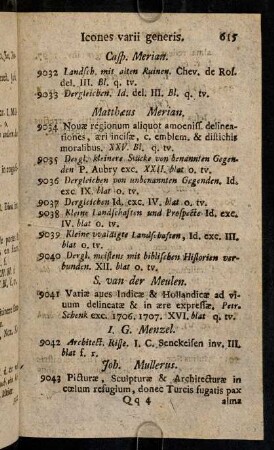 Icones varii generis. 615
Casp. Merian.
9032 Landsch. mit alten Ruinen. Chev. de Ros.
del. III. Bl. q. tv.
9033 Dergleichen. Id. del. III. Bl. q. tv.
Matthæus Merian.
9034 Novæ regionum aliquot amœniss. delinea-
tiones, æri incisæ, c. emblem. & distichis
moralibus. XXV. Bl. q. tv.
9035 Dergl. kleinere Stücke von benannten Gegen-
den P. Aubry exc. XXII. blat o. tv.
9036 Dergleichen von unbenannten Gegenden. Id.
exc. IX. blat o. tv.
9037 Dergleichen Id. exc. IV. blat o. tv.
9038 Kleine Landschaften und Prospecte Id. exc.
IV. blat o. tv.
9039 Kleine waldigte Landschaften, Id. exc. III.
blat o. tv.
9040 Dergl. meistens mit biblischen Historien ver-
bunden. XII. blat o. tv.
S. van der Meulen.
9041 Variæ aves Indicæ & Hollandicæ ad vi-
vum delineatæ & in ære expressæ, Petr.
Schenk exc. 1706. 1707. XVI. blat q. tv.
I. G. Menzel.
9042 Architect. Risse. I. C. Senckeisen inv. III.
blat f. r.
Joh. Mullerus.
9043 Picturæ, Sculpturæ & Architecturæ in
cœlum refugium, donec Turcis fugatis pax
Qq 4 alma